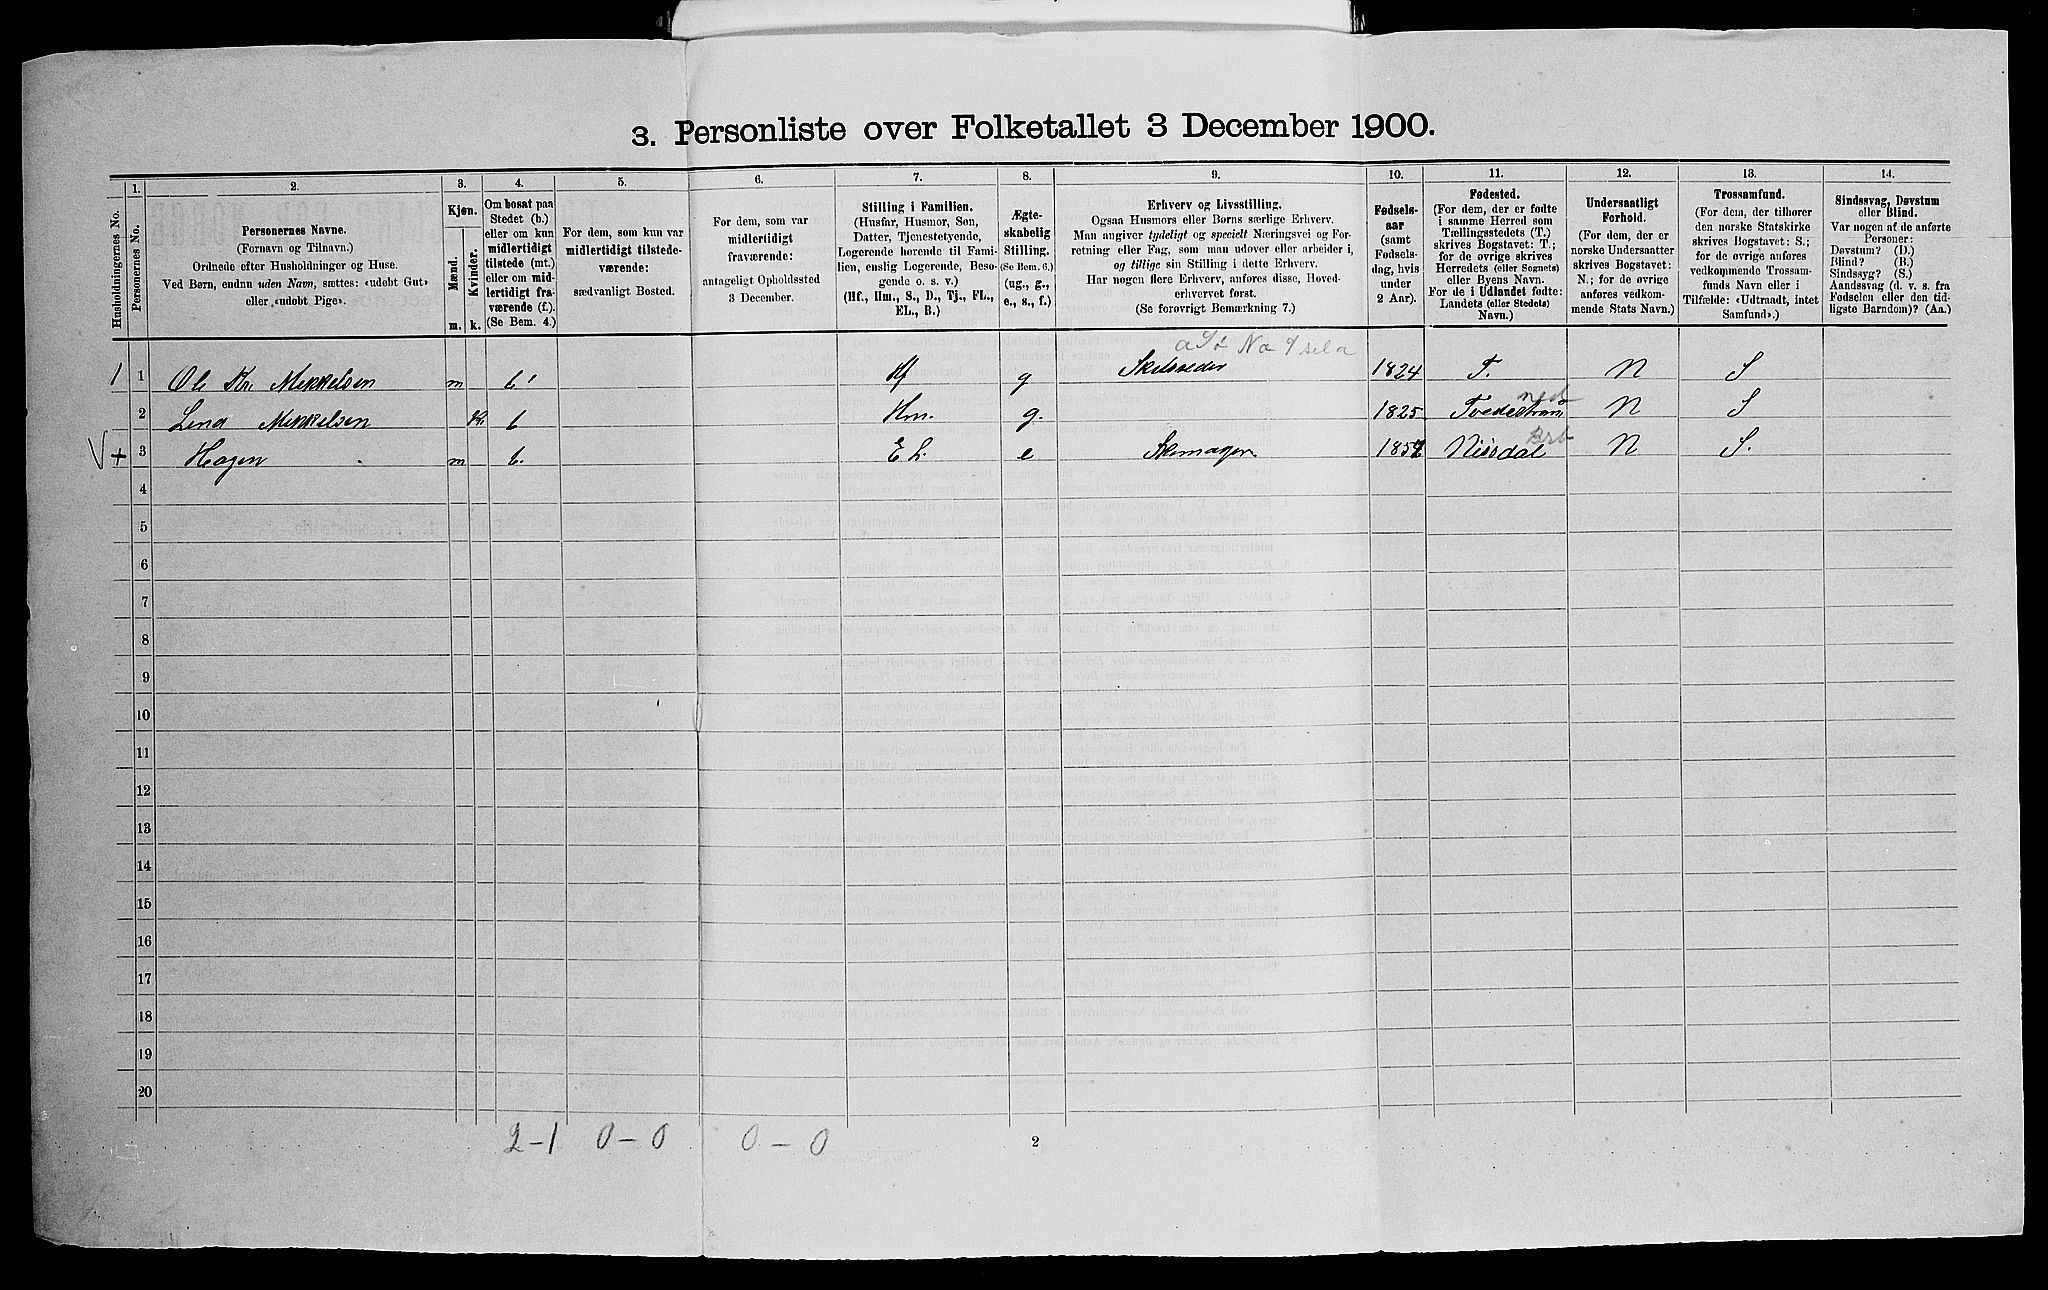 3. Personliste over Folketallet 3 December 1900.
Husholdningernes No.
1.
Personernes No.
2.
Personernes Navne.
(Fornavn og Tilnavn.)
Ordnede efter Husholdninger og Huse.
Ved Børn, endnu uden Navn, sættes: «udøbt Gut»
eller «udøbt Pige».
3.
Kjøn.
Mænd.
Kvinder.
m.
k.
4.
Om bosat paa
Stedet (b.)
eller om kun
midlertidigt
tilstede (mt.)
eller om mid-
lertidigt fra-
værende (f.).
(Se Bem. 4.)
5.
For dem, som kun var
midlertidigt tilstede-
værende:
sædvanligt Bosted.
6.
For dem, som var
midlertidigt
fraværende:
antageligt Opholdssted
3 December.
7.
Stilling i Familien.
(Husfar, Husmor, Søn,
Datter, Tjenestetyende,
Logerende hørende til Fami-
lien, enslig Logerende, Besø-
gende o. s. v.)
(Hf., Hm., S., D., Tj., FL.,
EL., B.)
8.
Ægte-
skabelig
Stilling.
(Se Bem. 6.)
(ug., g.,
e., s., f.)
9.
Erhverv og Livsstilling.
Ogsaa Husmors eller Børns særlige Erhverv.
Man angiver tydeligt og specielt Næringsvei og For-
retning eller Fag, som man udover eller arbeider i,
og tillige sin Stilling i dette Erhverv.
Har nogen flere Erhverv, anføres disse, Hoved-
erhvervet først.
(Se forøvrigt Bemærkning 7.)
10.
Fødsels-
aar
(samt
Fødsels-
dag, hvis
under
2 Aar).
11.
Fødested.
(For dem, der er fødte
i samme Herred som
Tællingsstedets (T.)
skrives Bogstavet: T.;
for de øvrige skrives
Herredets (eller Sognets)
eller Byens Navn.
For de i Udlandet fødte:
Landets (eller Stedets)
Navn.)
12.
Undersaatligt
Forhold.
(For dem, der er
norske Undersaatter
skrives Bogstavet:
N.; for de øvrige
anføres vedkom-
mende Stats Navn.)
13.
Trossamfund.
(For dem, der tilhører
den norske Statskirke
skrives Bogstavet: S.;
for de øvrige anføres
vedkommende Trossam-
funds Navn eller i
Tilfælde: «Udtraadt, intet
Samfund».)
14.
Sindssvag, Døvstum
eller Blind.
Var nogen af de anførte
Personer:
Døvstum? (D.)
Blind? (B.)
Sindssyg? (S.)
Aandssvag (d. v. s. fra
Fødselen eller den tid-
ligste Barndom)? (Aa.)
1 1 Ole Kr. Mekkelsen m b Hf g 1824 T. N S
2 Lina Mekkelsen K. b Hm. g. 1825 N S
+ 3 Hagen m b. E L. e Skomager 1857 Nissdal N S.
4
5
6
7
8
9
10
11
12
13
14
15
16
17
18
19
20
2-1 0-0 0-0
2